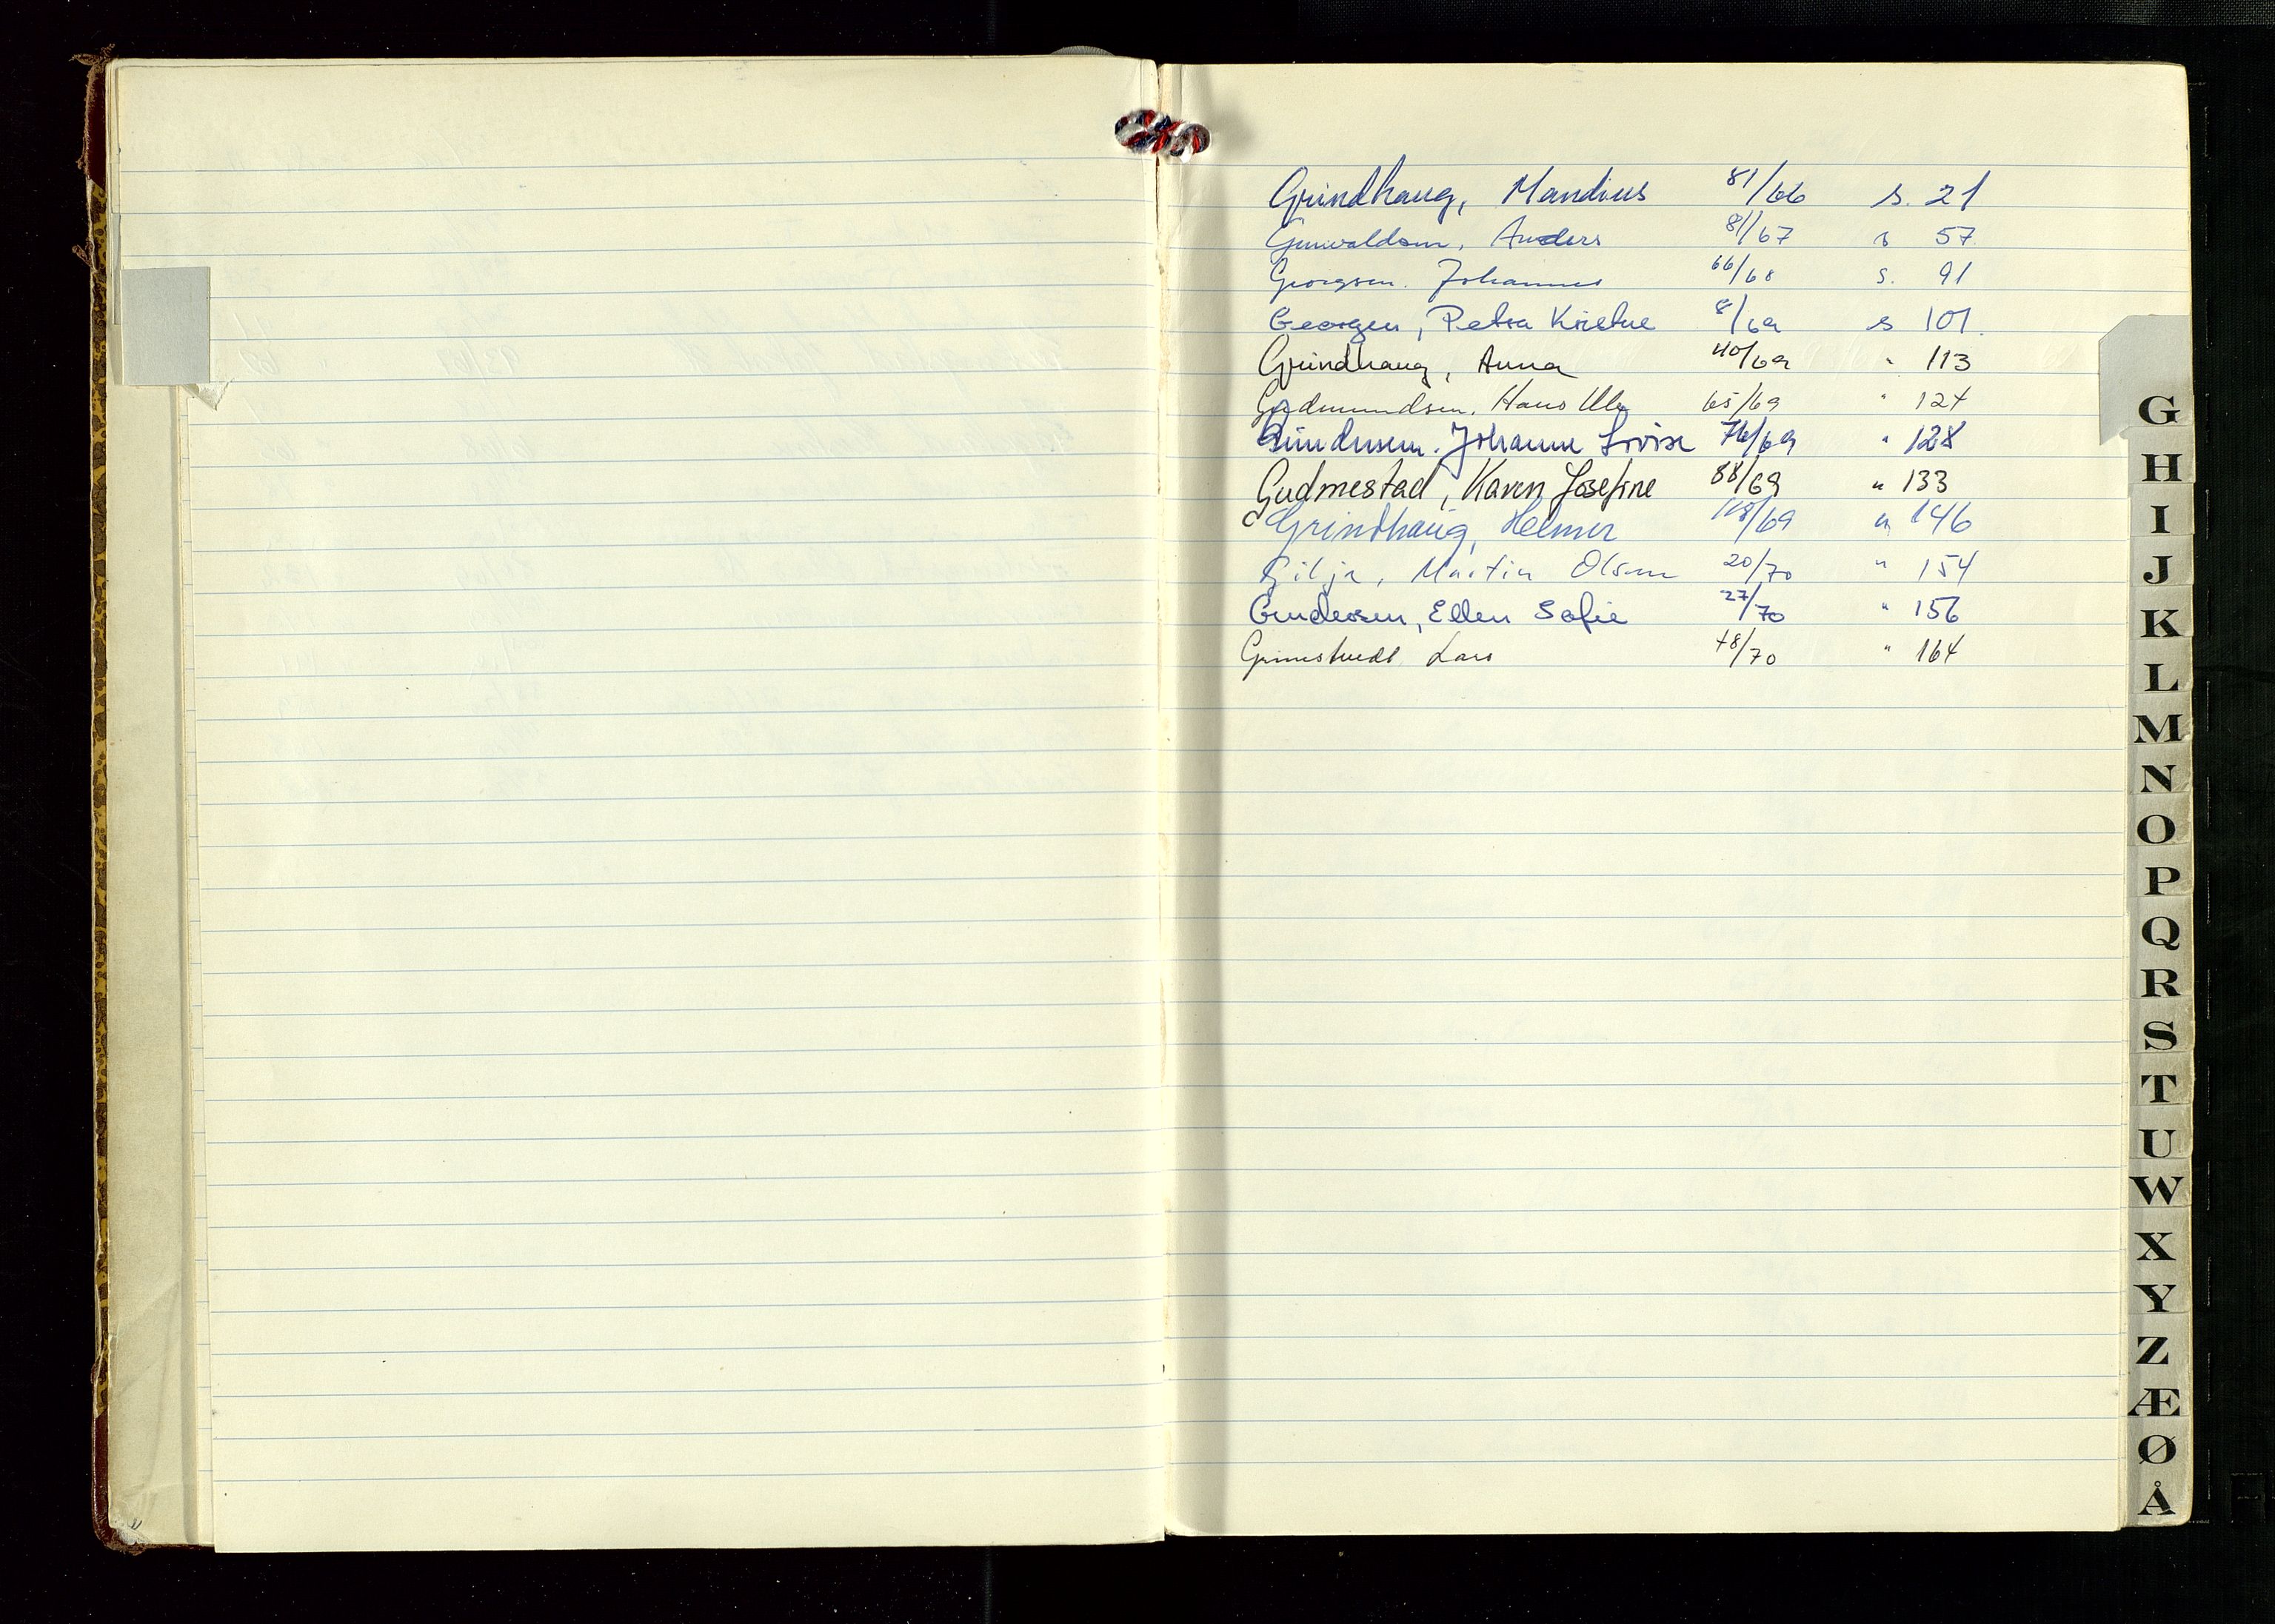 Grindhaug, Mandius 81/66 s. 21
Gunvaldsen, Anders 81/67 s 57
Georgsen. Johannes 66/68 s. 91
Georgsen, Petra Kristine 8/69 s 101.
Grindhaug, Anna 40/69 " 113
Gudmundsen, Hans Ule 65/69 " 127
Gundersen. Johanne Lovise 76/69 " 128
Gudmestad, Karen Josefine 88/69 " 133
Grindhaug, Helmer 118/69 " 146
Gilja, Martin Olsen 20/70 " 154
Gundersen, Ellen Sofie 27/70 " 156
Lars 48/70 " 164
G
H
I
J
K
L
M
N
O
P
Q
R
S
T
U
W
X
Y
Z
Æ
Ø
Å